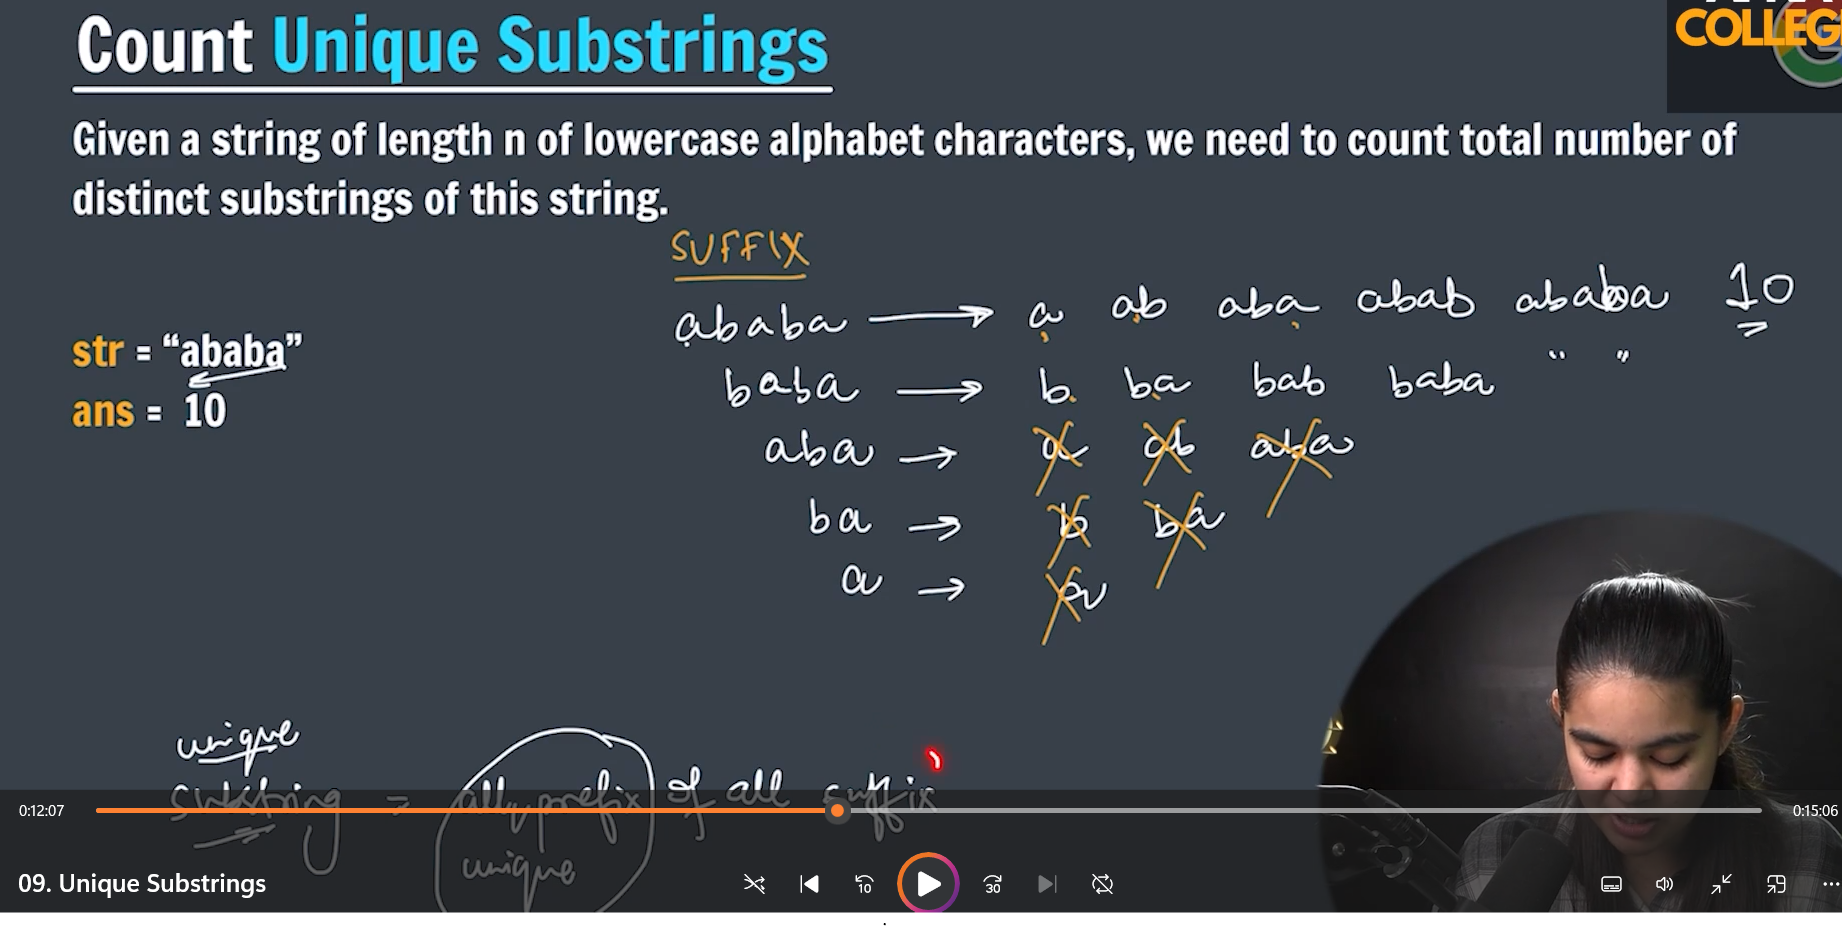 COLLEG
Count Unique Substrings
Given a string of length n of lowercase alphabet characters, we need to count total number of
distinct substrings of this string.
SUFFIX
ababa → a ab aba abab ababa 10
str = “ababa”
" "
baba → b ba bab baba
ans = 10
aba → a ab aba
ba → b ba
a → a
unique
substring = all prefix of all suffix
unique
0:12:07
0:15:06
09. Unique Substrings
10
30